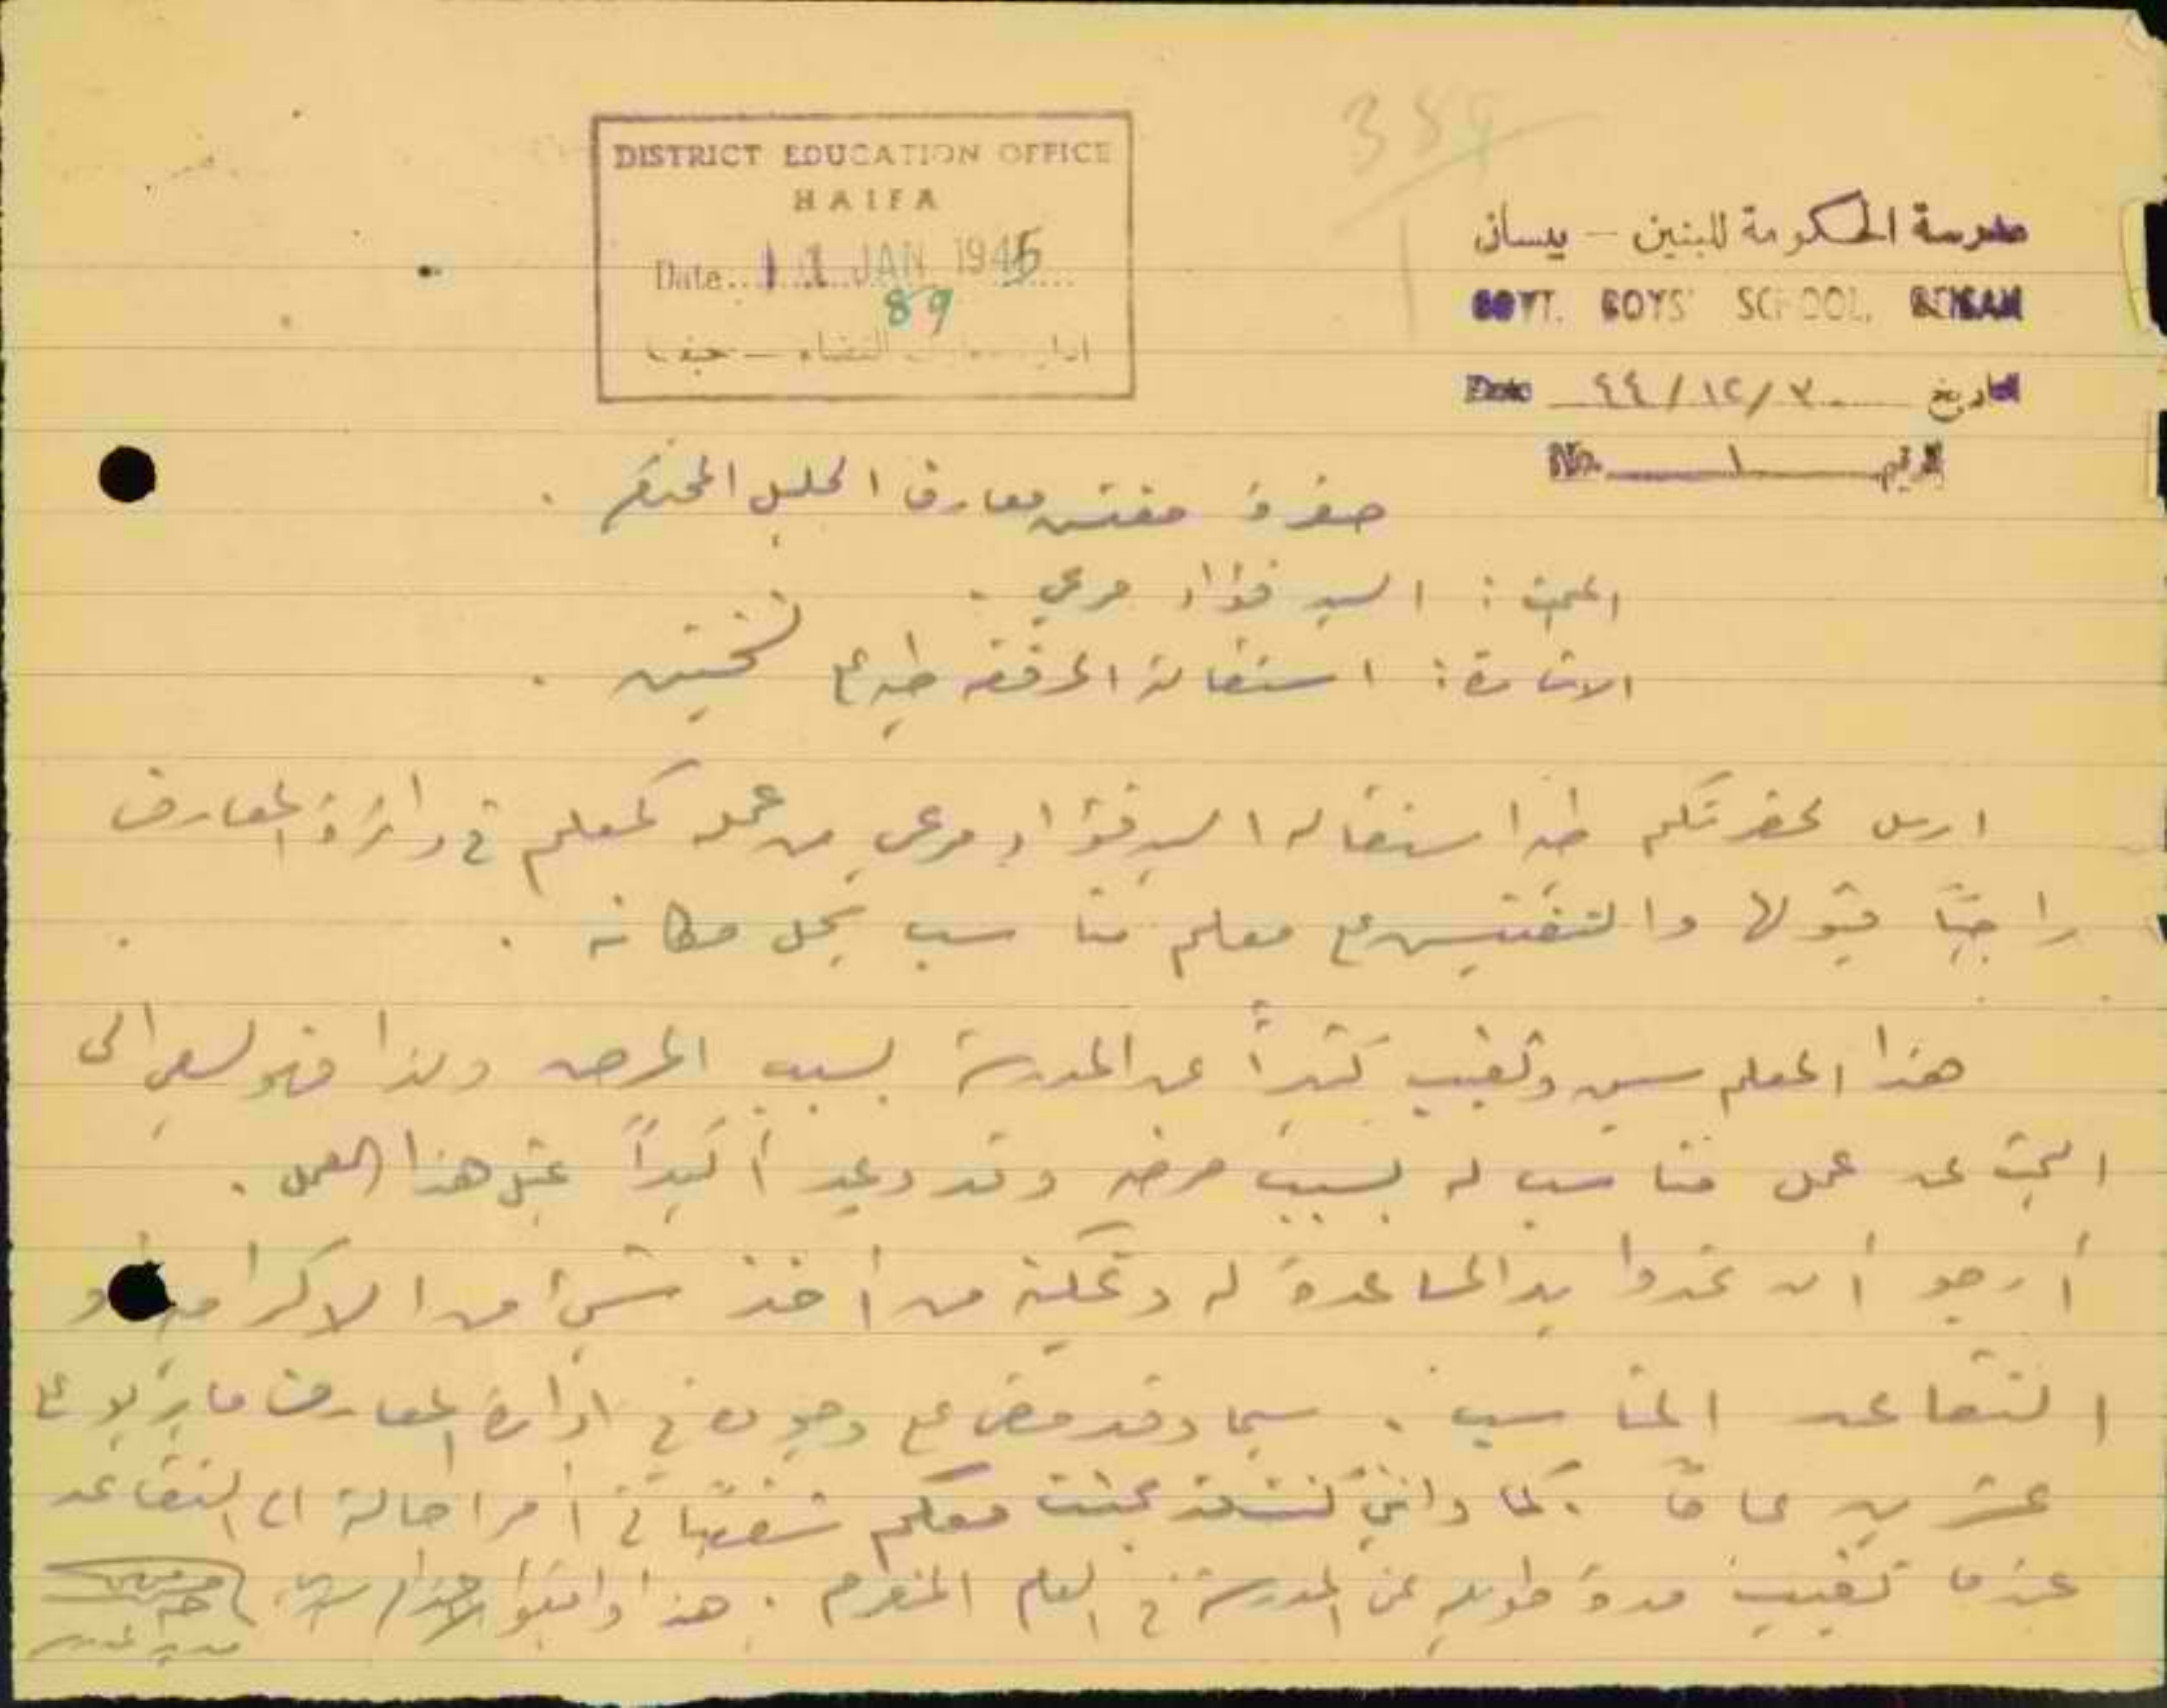 389
DISTRICT EDUCATION OFFICE
HAIFA
Date.. 11 JAN 1945
89
ادارة معارف القضاء — حيفا
مدرسة الحكومة للبنين — بيسان
GOVT. BOYS' SCHOOL, BEISAN
Date ٤٤/١٢/٣٠ التاريخ
No. ١ الرقم
حضرة مفتش معارف الجليل المحترم .
المبحث : السيد فؤاد مرعي .
الاشارة : استقالة المرفقة طيه على نسختين .
ارسل لحضرتكم طيه استقالة السيد فؤاد مرعي من عمله كمعلم في دائرة المعارف
راجيًا قبولها والتفتيش على معلم مناسب يحل مكانه .
هذا المعلم مسن وتغيب كثيراً عن المدرسة بسبب المرض ولذا فهو يسعى الى
البحث عن عمل مناسب له بسبب مرضه وقد وعد أكيداً بمثل هذا العمل .
أرجو أن تمدوا يد المساعدة له وتمكينه من أخذ شيء من الاكرامية او
التقاعد المناسب . سيما وقد مضى على وجوده في ادارة المعارف ما يزيد على
عشرين عامًا . كما وانني كنت قد بحثت معكم شفهيًا في أمر احالته الى التقاعد
عندما تغيب مدة طويلة عن المدرسة في العام المنصرم . هذا واقبلوا احترامي
مدير المدرسة